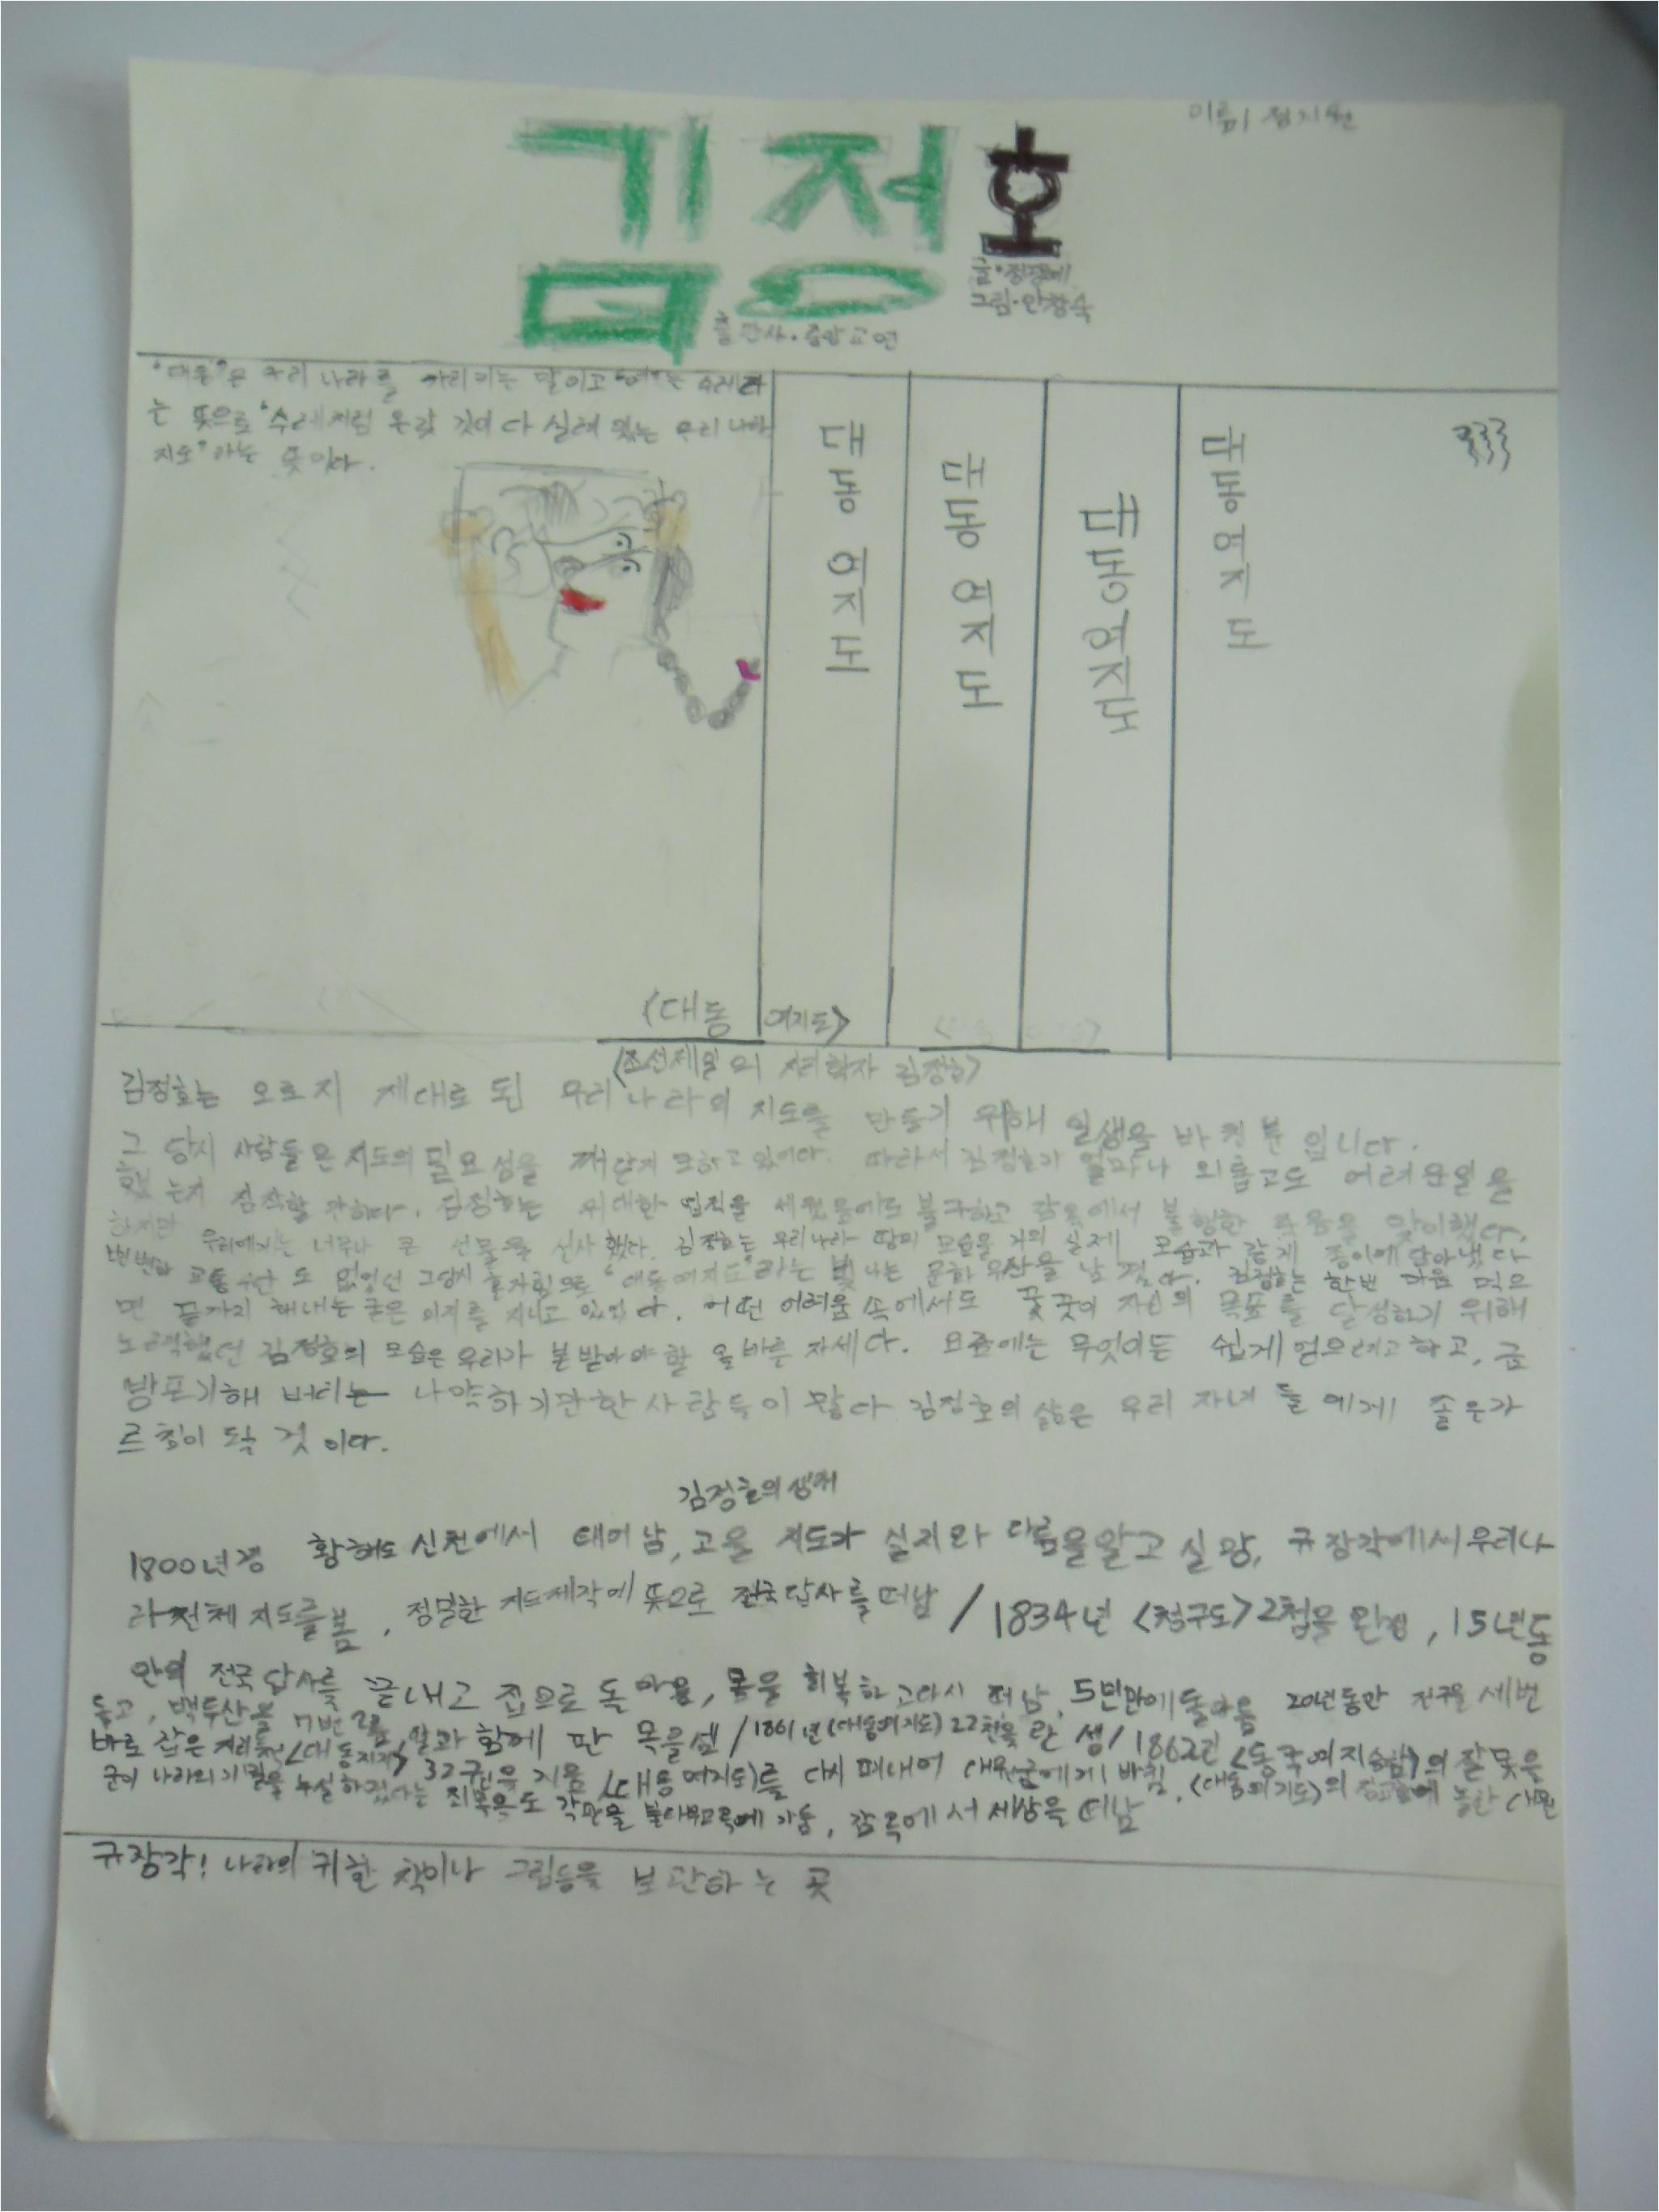 이름 정지원
김정호
그림·안창숙
출판사·중앙교연
"대동"은 우리 나라를 가리키는 말이고 "여"는 수레라
는 뜻으로 "수레처럼 온갖 것이 다 실려 있는 우리 나라
지도"라는 뜻이다.
대동 여지도
대동 여지도
대동여지도
대동여지도
<대동 여지도>
<조선제일의 지리학자 김정호>
김정호는 오로지 제대로 된 우리나라의 지도를 만들기 위해 일생을 바친 분입니다.
그 당시 사람들은 지도의 필요성을 깨닫지 못하고 있었다. 따라서 김정호가 얼마나 외롭고도 어려운일을
했는지 짐작할 만하다. 김정호는 위대한 업적을 세웠음에도 불구하고 감옥에서 불행한 죽음을 맞이했다.
하지만 우리에게는 너무나 큰 선물을 선사했다. 김정호는 우리나라 땅의 모습을 거의 실제 모습과 같게 종이에 담아냈다
변변한 교통수단도 없었던 그당시 혼자힘으로 "대동여지도"라는 빛나는 문화 유산을 남겼다. 김정호는 한번 마음 먹으
면 끝까지 해내는 굳은 의지를 지니고 있었다. 어떤 어려움 속에서도 꿋꿋이 자신의 목표를 달성하기 위해
노력했던 김정호의 모습은 우리가 본받아야 할 올바른 자세다. 요즘에는 무엇이든 쉽게 얻으려고하고, 금
방포기해 버리는 나약하기만한 사람들이 많다 김정호의 삶은 우리 자녀들에게 좋은가
르침이 될 것이다.
김정호의생애
1800년경 황해도 신천에서 태어남, 고을 지도가 실지와 다름을알고 실망, 규장각에서우리나
라전체 지도를봄, 정밀한 지도제작에 뜻으로 전국답사를떠남 / 1834년 <청구도>2첩을 완성, 15년동
안의 전국 답사를 끝내고 집으로 돌아옴, 몸을 회복하고다시 떠남, 5년만에돌아옴 20년동안 전국을 세번
돌고, 백두산을 7번 오름 딸과 함께 판 목을샘 /1861년(대동여지도) 22첩을 완성/1862년 <동국여지승람>의 잘못을
바로 잡은 지리책 <대동지지> 32권을 지음 <대동여지도>를 다시 펴내어 대원군에게 바침, <대동여지도>의 정교함에 놀란 대원
군이 나라의기밀을 누설하겠다는 죄목으로 각판을 불태우고옥에 가둠, 감옥에서 세상을 떠남
규장각! 나라의 귀한 책이나 그림등을 보관하는 곳